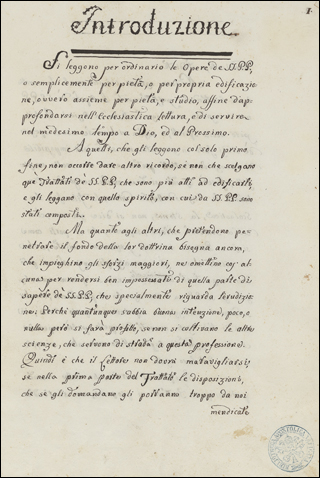 1.
Introduzione.
Si leggono per ordinario le Opere de SS. PP.
o semplicemẽte per pietà, o per propria edificazio
ne, ovvero assieme per pietà, e studio, affine d'ap
profondarsi nell'Ecclesiastica lettura, e di servire
nel medesimo tempo a Dio, ed al Prossimo.
A quelli, che gli leggono col solo primo
fine, non occorre dare altro ricordo, se non che scelgano
que' Trattati de' SS. PP., che sono più atti ad edificarli,
e gli leggano con quello spirito, con cui da' SS. PP. sono
stati composti.
Ma quanto agli altri, che pretendono pe
netrare il fondo della lor dottrina bisogna ancora,
che impieghino gli sforzi maggiori, ne omettino cos' al
cuna per rendersi ben impossessati di quella parte di
sapere de' SS. PP., che specialmente riguarda l'erudizio
ne. Perchè quantunque s'abbia buona intenzione, poco, o
nullo però si farà profitto, se non si coltivano le altre
scienze, che servono di strada a questa professione.
Quindi è che il Lettore non dovrà maravigliarsi,
se nella prima parte del Trattato le disposizioni,
che se gli domandano gli parranno troppo da noi
mendicate